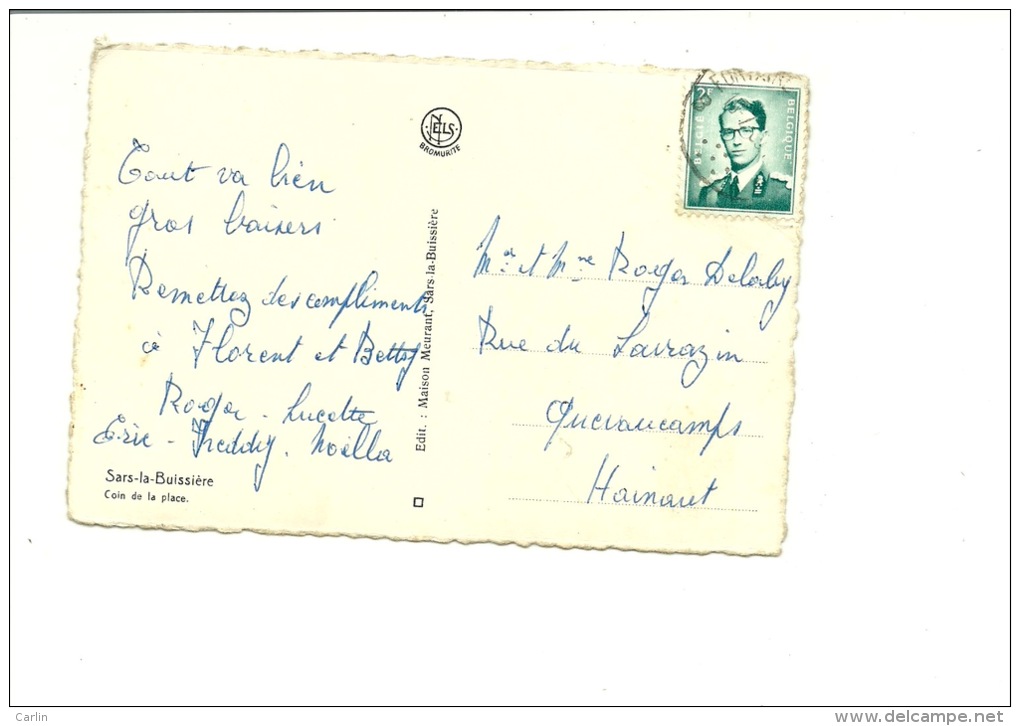 Tout va bien
gros baisers
Remettez des compliments
à Florent et Betty
Roger - Lucette
Eric - Freddy. Noëlla
Sars-la-Buissière
Coin de la place.
NELS
BROMURITE
Edit. : Maison Meurant, Sars-la-Buissière
2F
BELGIË
BELGIQUE
Mr et Mme Roger Delaby
Rue du
Quevaucamps
Hainaut
Carlin
delcampe.net